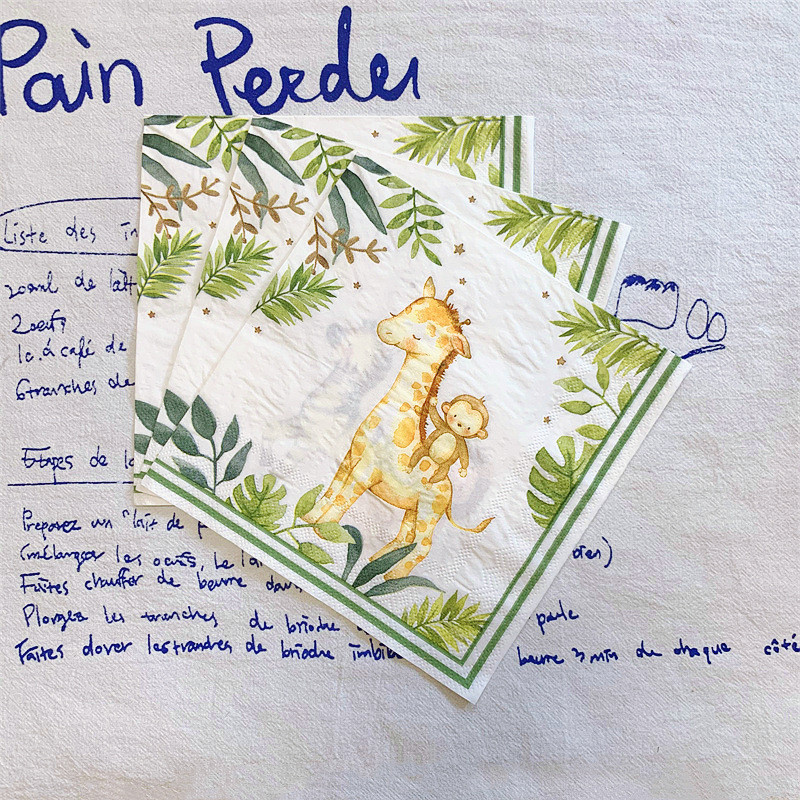 Pain Perdu
Liste des in
200ml de lait
2 oeufs
1c. à café de
6 tranches de
Etapes de la
Preparez un "lait de p
(mélanger les oeufs, le lai
Faites chauffer de beurre dans
Plongez les tranches de brioche
Faites dorer les tranches de brioche imbibé beurre 3 min de chaque côté